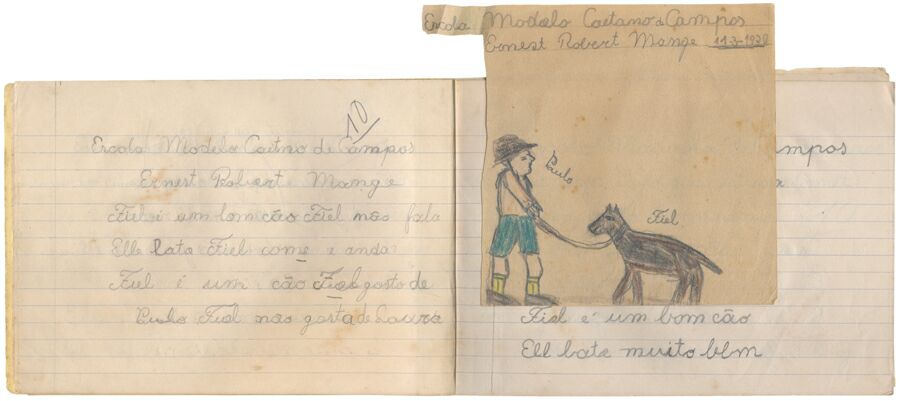 10
Escola Modelo Caetno de Campos
Ernest Robert Mange
Fiel é um bom cão Fiel não fala
Elle late Fiel come e anda
Fiel é um cão Fiel gosta de
Paulo Fiel não gosta de Laura
Escola Modelo Caetano de Campos
Ernest Robert Mange 11-3-1928
Paulo
Fiel
ampos
Fiel é um bom cão
Ell late muito